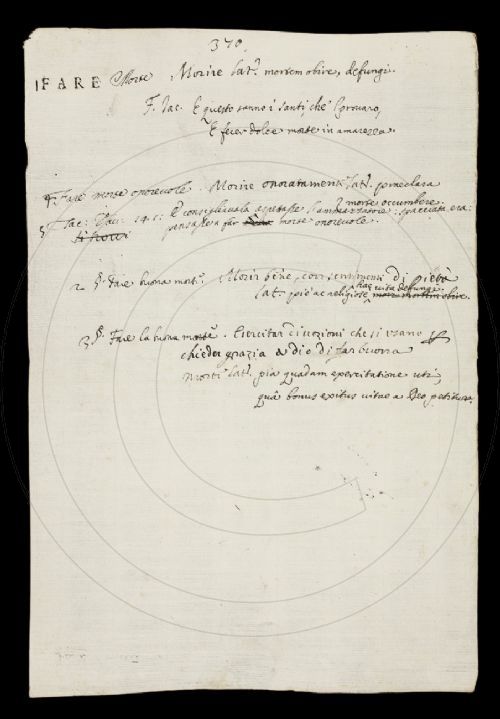 370.
FARE Morte Morire Lat. mortem obire, defungi.
F. Jac. E questo sanno i Santi, che 'l provaro,
E fecer dolce morte in amarezza.
Fare morte onorevole. Morire onoratamente Lat. praeclara
morte occumbere.
Tac. Dav. 14. E consigliavala aspettasse l'ammazzatore: spacciata era:
pensasse a far morte onorevole.
2 §. Fare buona morte. Morir bene, con sentimenti di pietà
Lat. piè ac religiosè hac vita defungi.
3 §. Fare la buona morte. Esercitar divozioni che si usano
chieder grazia a dio di far buona
morte Lat. pia quadam exercitatione uti,
quâ bonus exitus vitae a Deo petitur.